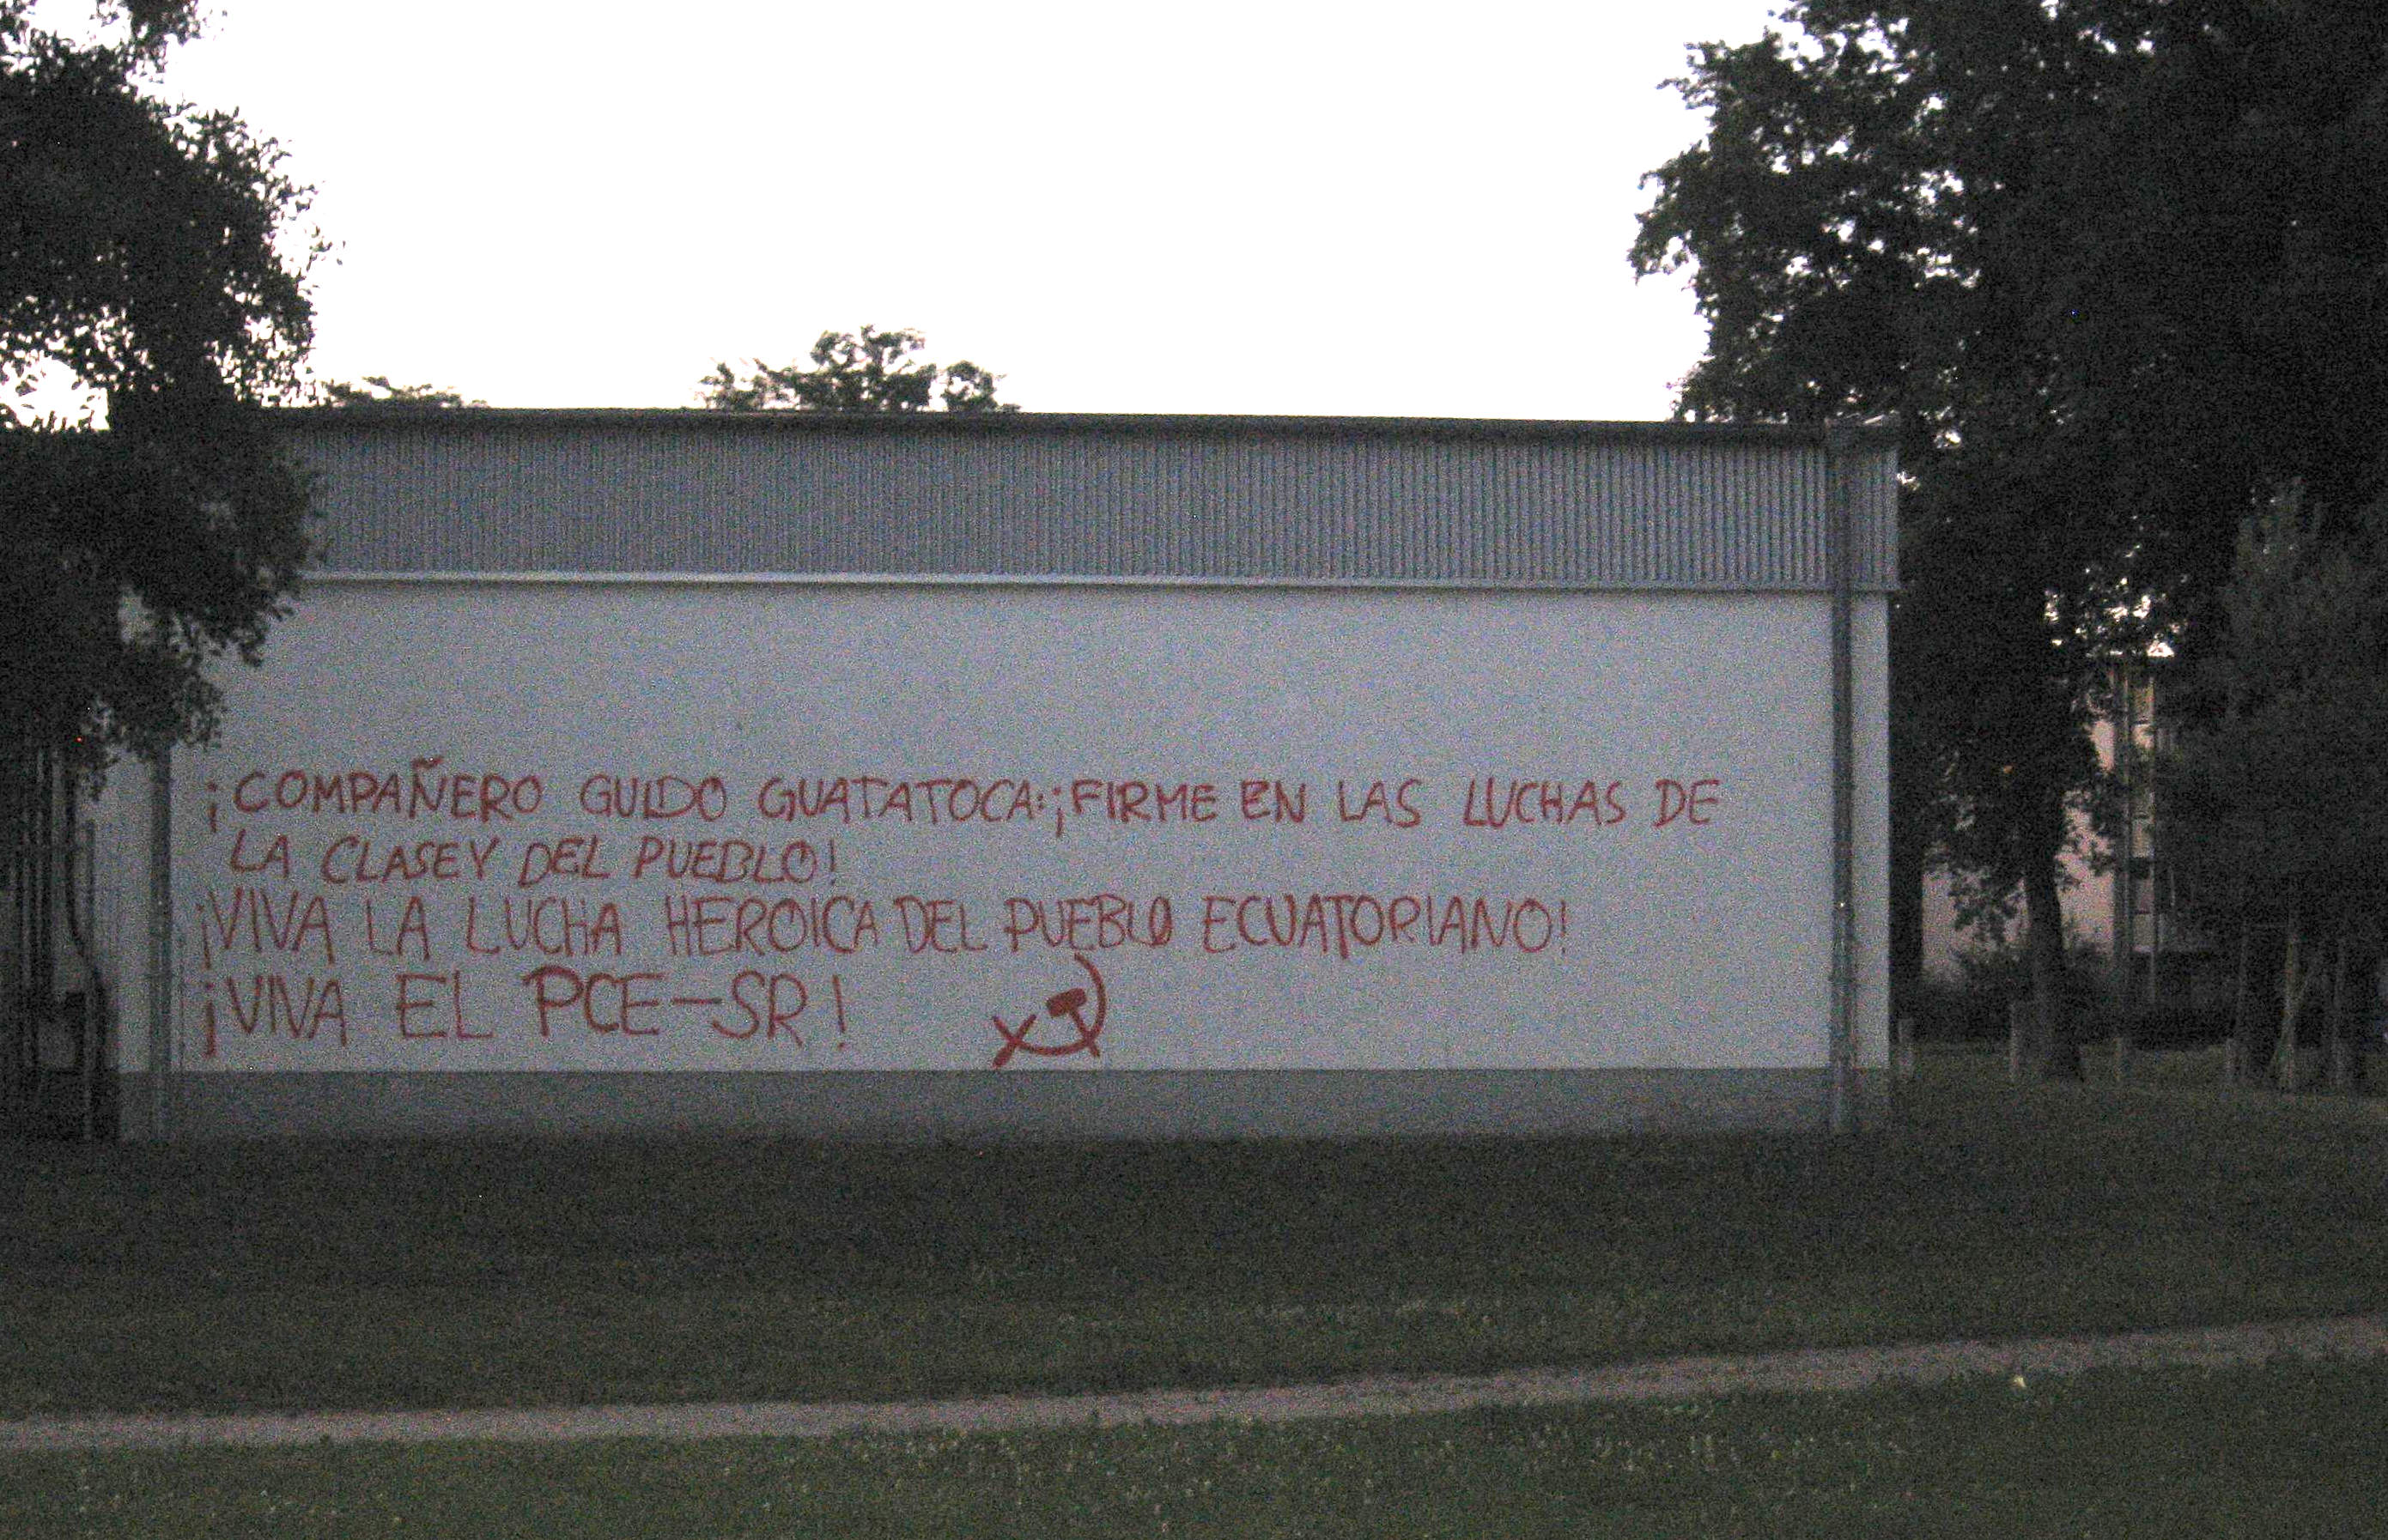 ¡COMPAÑERO GUIDO GUATATOCA:¡FIRME EN LAS LUCHAS DE
LA CLASE Y DEL PUEBLO!
¡VIVA LA LUCHA HEROICA DEL PUEBLO ECUATORIANO!
¡VIVA EL PCE-SR!